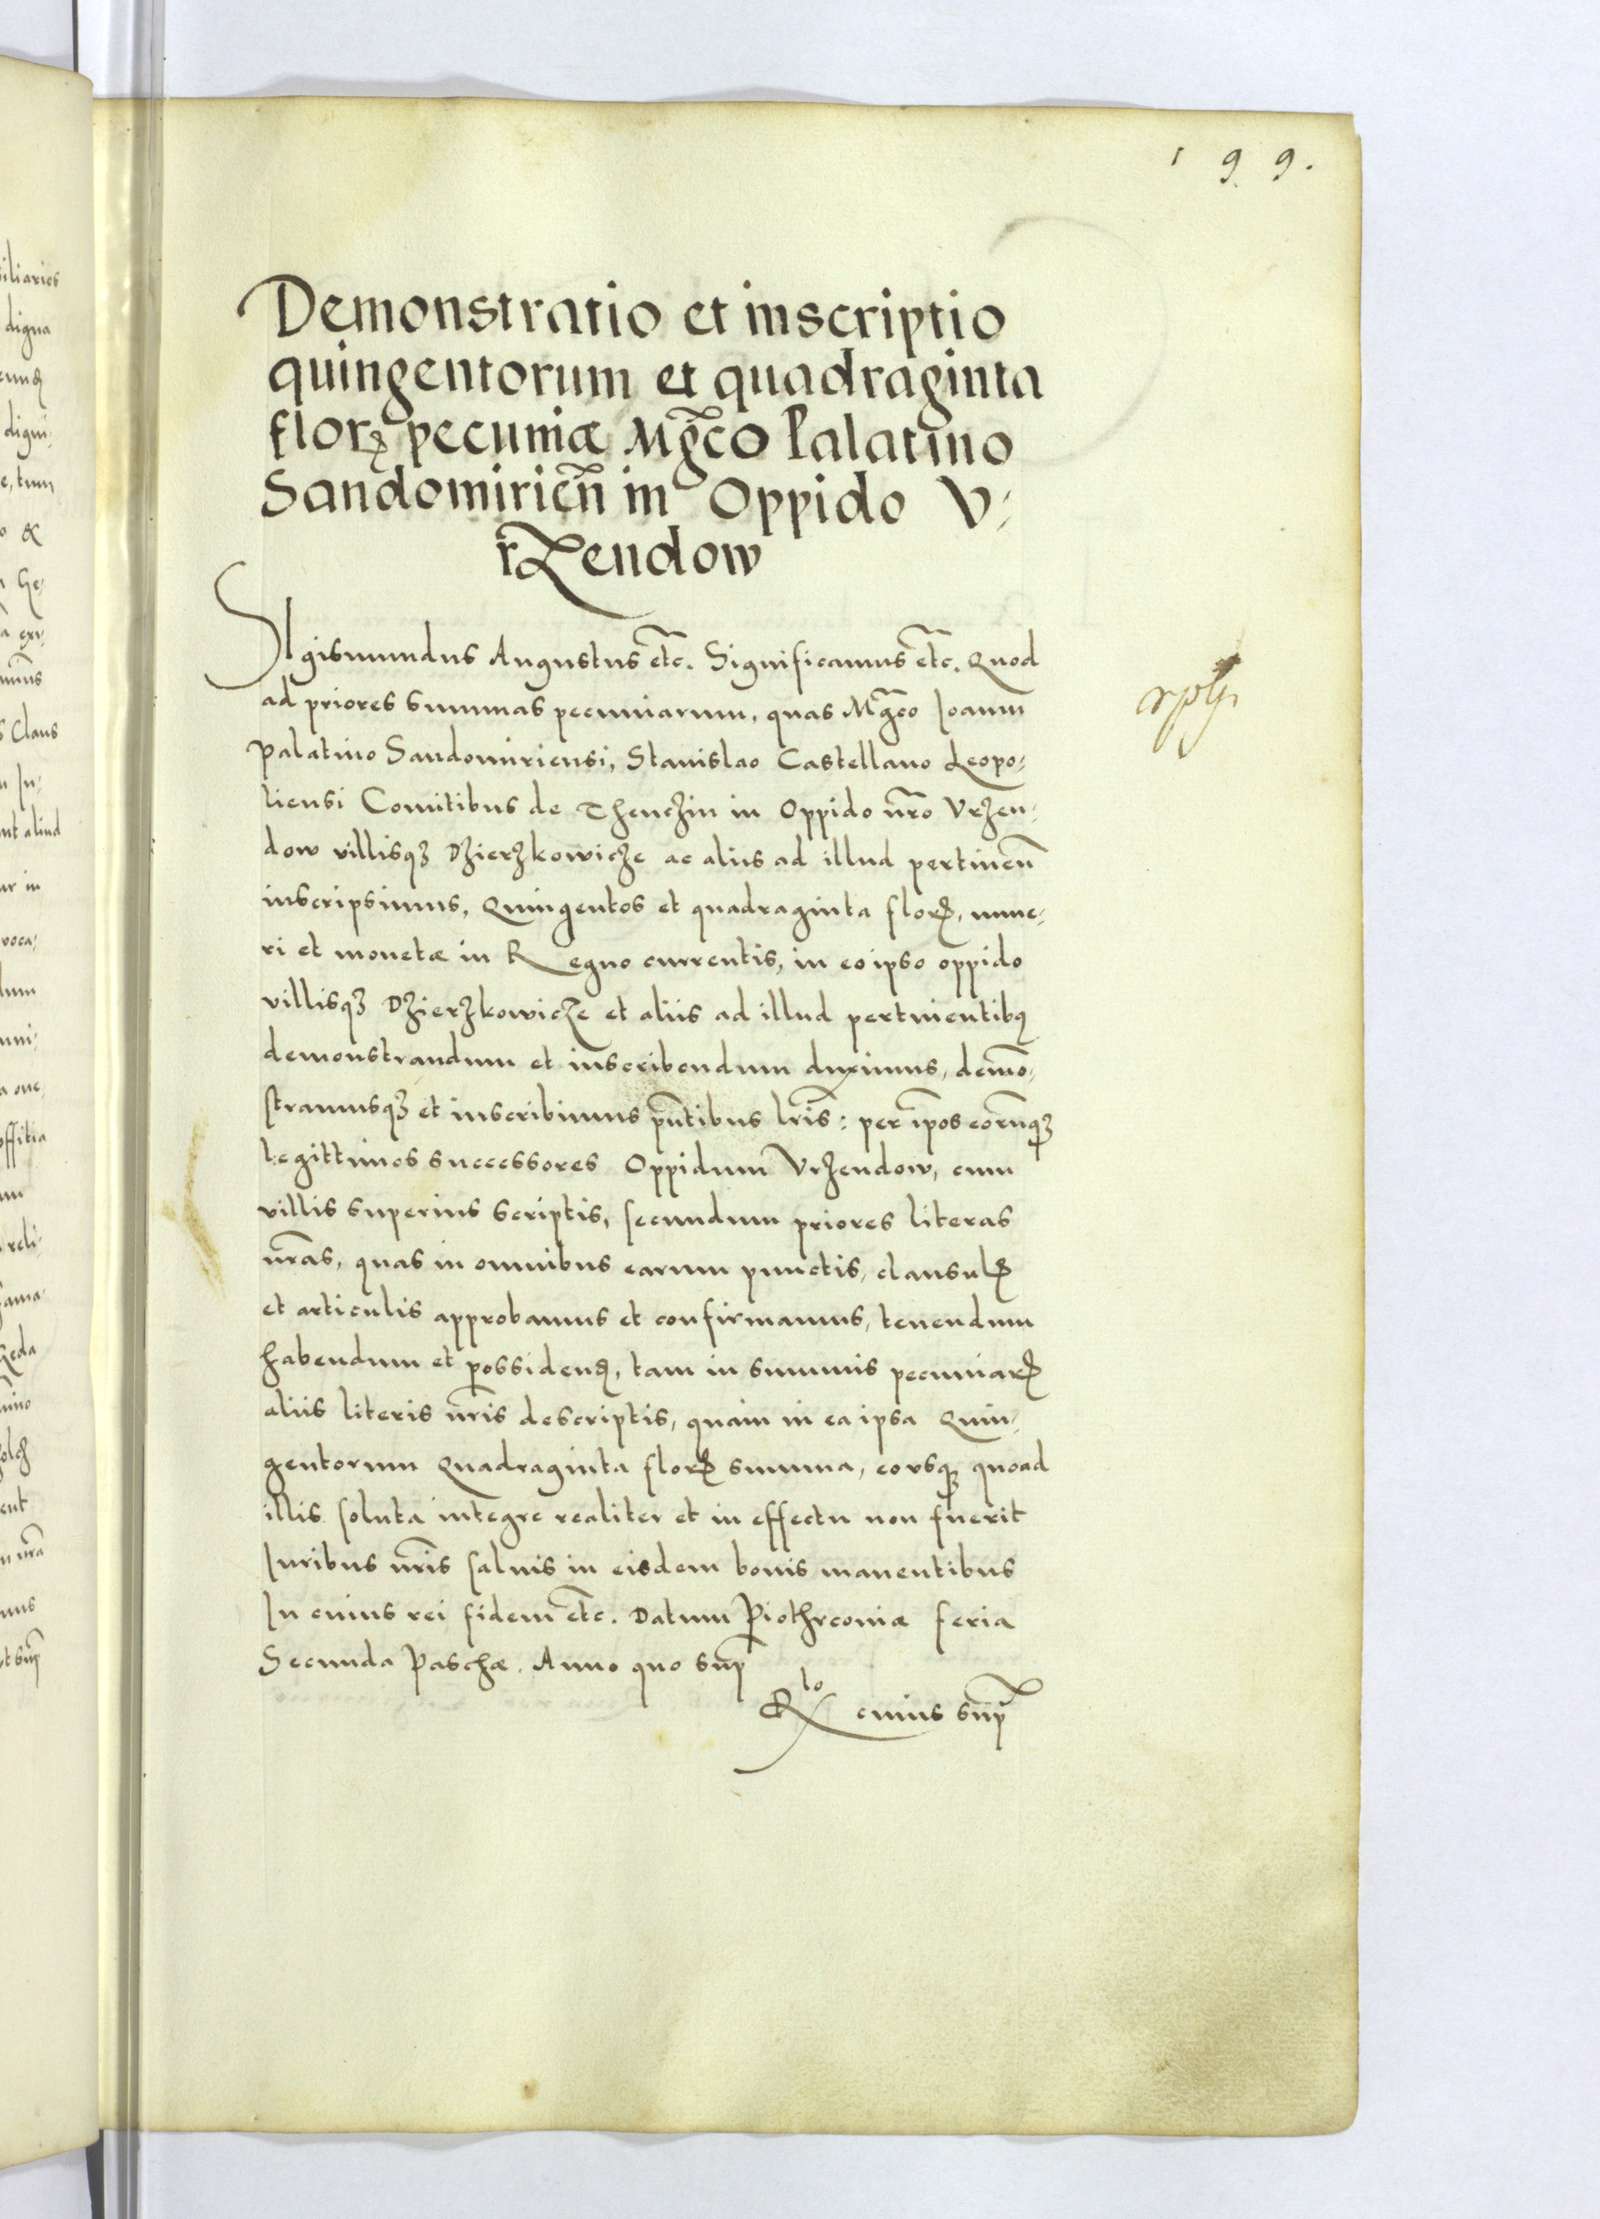 199.
Demonstratio et inscriptio
quingentorum et quadraginta
florꝝ pecuniæ Mg̃co Palatino
Sandomirien̄ in Oppido V-
rzendow
SIgismundus Augustus etc̃. Significamus etc̃. Quod
ad priores summas pecuniarum, quas Mg̃co Ioanni
Palatino Sandomiriensi, Stanislao Castellano Leopo-
liensi Comitibus de Thenchin in Oppido nr̃o Vrzen-
dow villisqꝫ Dzierzkowicze ac aliis ad illud pertinen̄
inscripsimus, Quingentos et quadraginta florꝝ, nume-
ri et monetæ in Regno currentis, in eo ipso oppido
villisqꝫ Dzierzkowicze et aliis ad illud pertinentibꝰ
demonstrandum et inscribendum duximus, demõ-
stramusqꝫ et inscribimus pñtibus lr̃is: per ip̃os eorũqꝫ
legittimos successores Oppidum Vrzendow, cum
villis superius scriptis, secundum priores literas
nr̃as, quas in omnibus earum punctis, clausulꝭ
et articulis approbamus et confirmamus, tenendum
habendum et possidenꝭ, tam in summis pecuniarꝝ
aliis literis nr̃is descriptis, quam in ea ipsa Quin-
gentorum Quadraginta florꝝ summa, eousqꝫ quoad
illis soluta integre realiter et in effectu non fuerit
Iuribus nr̃is saluis in eisdem bonis manentibus
In cuius rei fidem etc̃. Datum Piothrconiæ feria
Secunda Paschæ. Anno quo sup̃
Rlo cuius sup̃